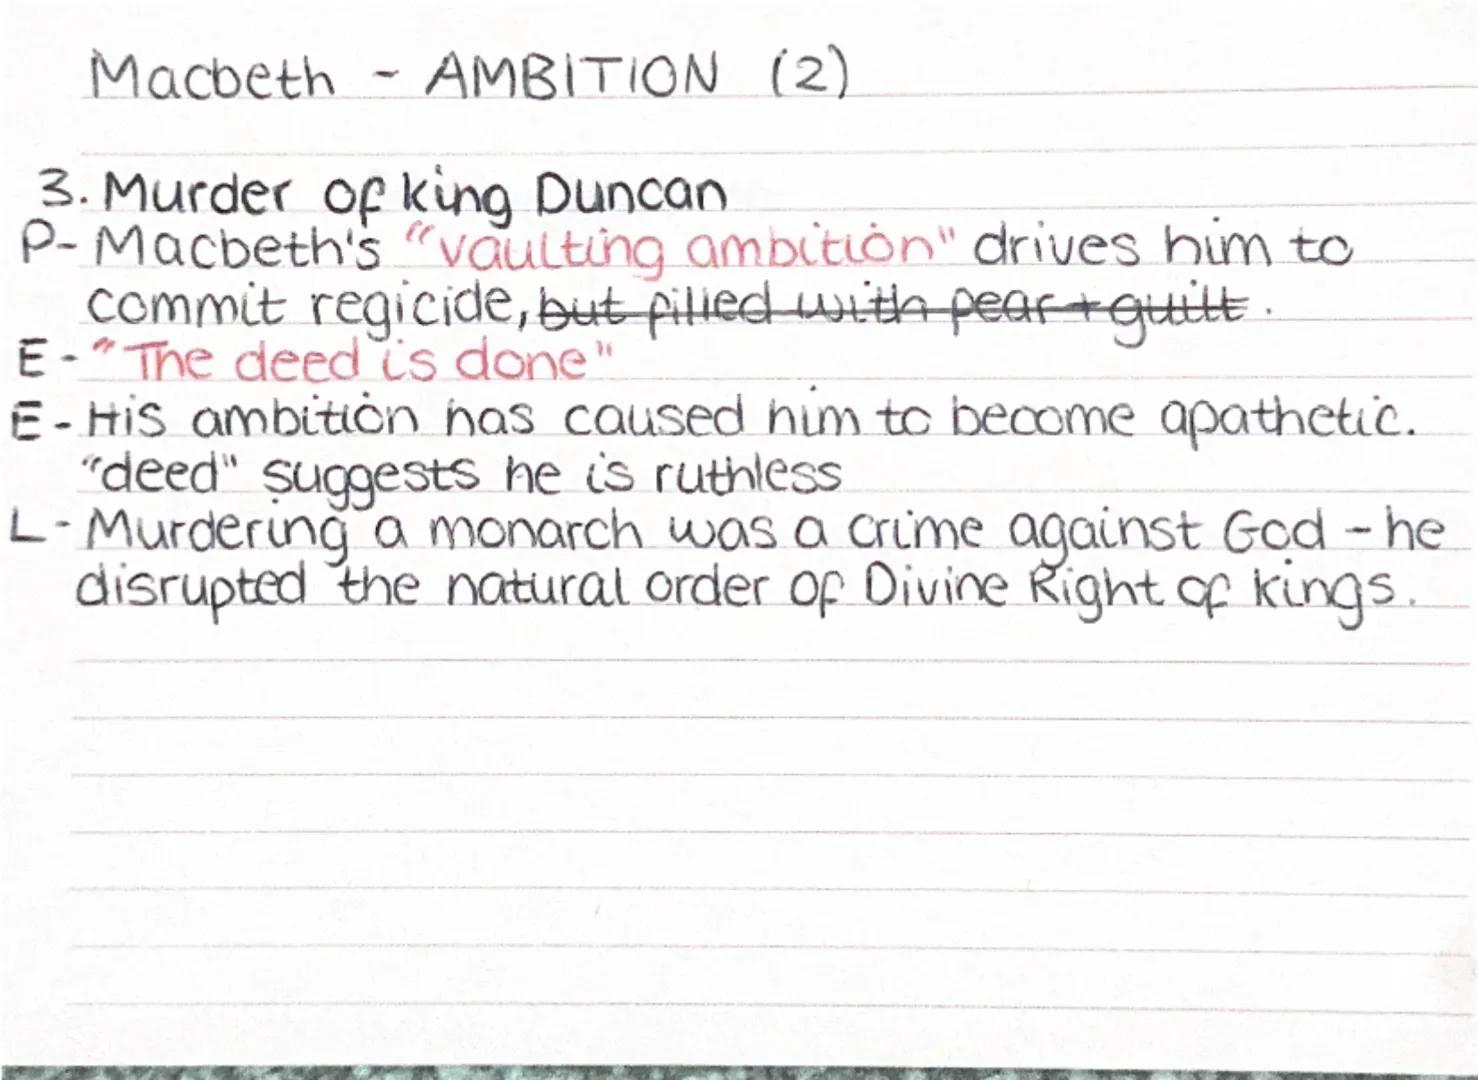 Macbeth - AMBITION (2)
3. Murder of king Duncan
P- Macbeth's "vaulting ambition" drives him to
commit regicide, but filled with fear + guilt.
E - "The deed is done"
E - His ambition has caused him to become apathetic.
"deed" suggests he is ruthless
L - Murdering a monarch was a crime against God - he
disrupted the natural order of Divine Right of kings.